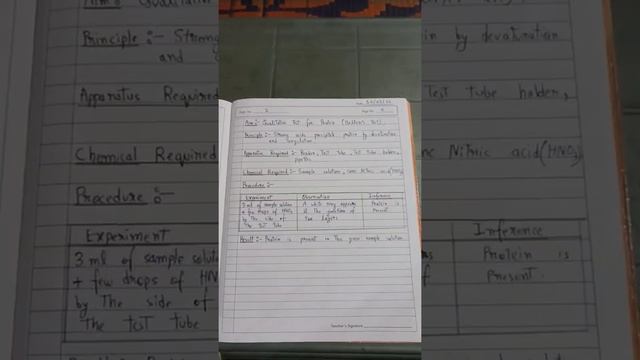 Date
Page No. 2
Aim :- Qualitative Test for Protein (Heller's Test)
Principle :- Strong acids precipitate protein by devaturation
and Coagulation
Apparatus Required :- Beaker, Test Tube, Test Tube holder,
pipette
Chemical Required :- Sample solution, conc Nitric acid (HNO3)
Procedure :-
Experiment Observation Inference
3 ml of sample solution A white ring appears Protein is
+ few drops of HNO3 at the junction of Present
by The side of two layers
The test tube
Result :- Protein is present in the given sample solution
Teacher's Signature
Aim :- Qualitative
Principle :- Strong
and
Apparatus Required
Chemical Required
Procedure :-
Experiment
3 ml of sample
+ few drops of
by The side of
The test tube
in by devaturation
Test tube holder,
Nitric acid (HNO3)
Inference
Protein is
Present.